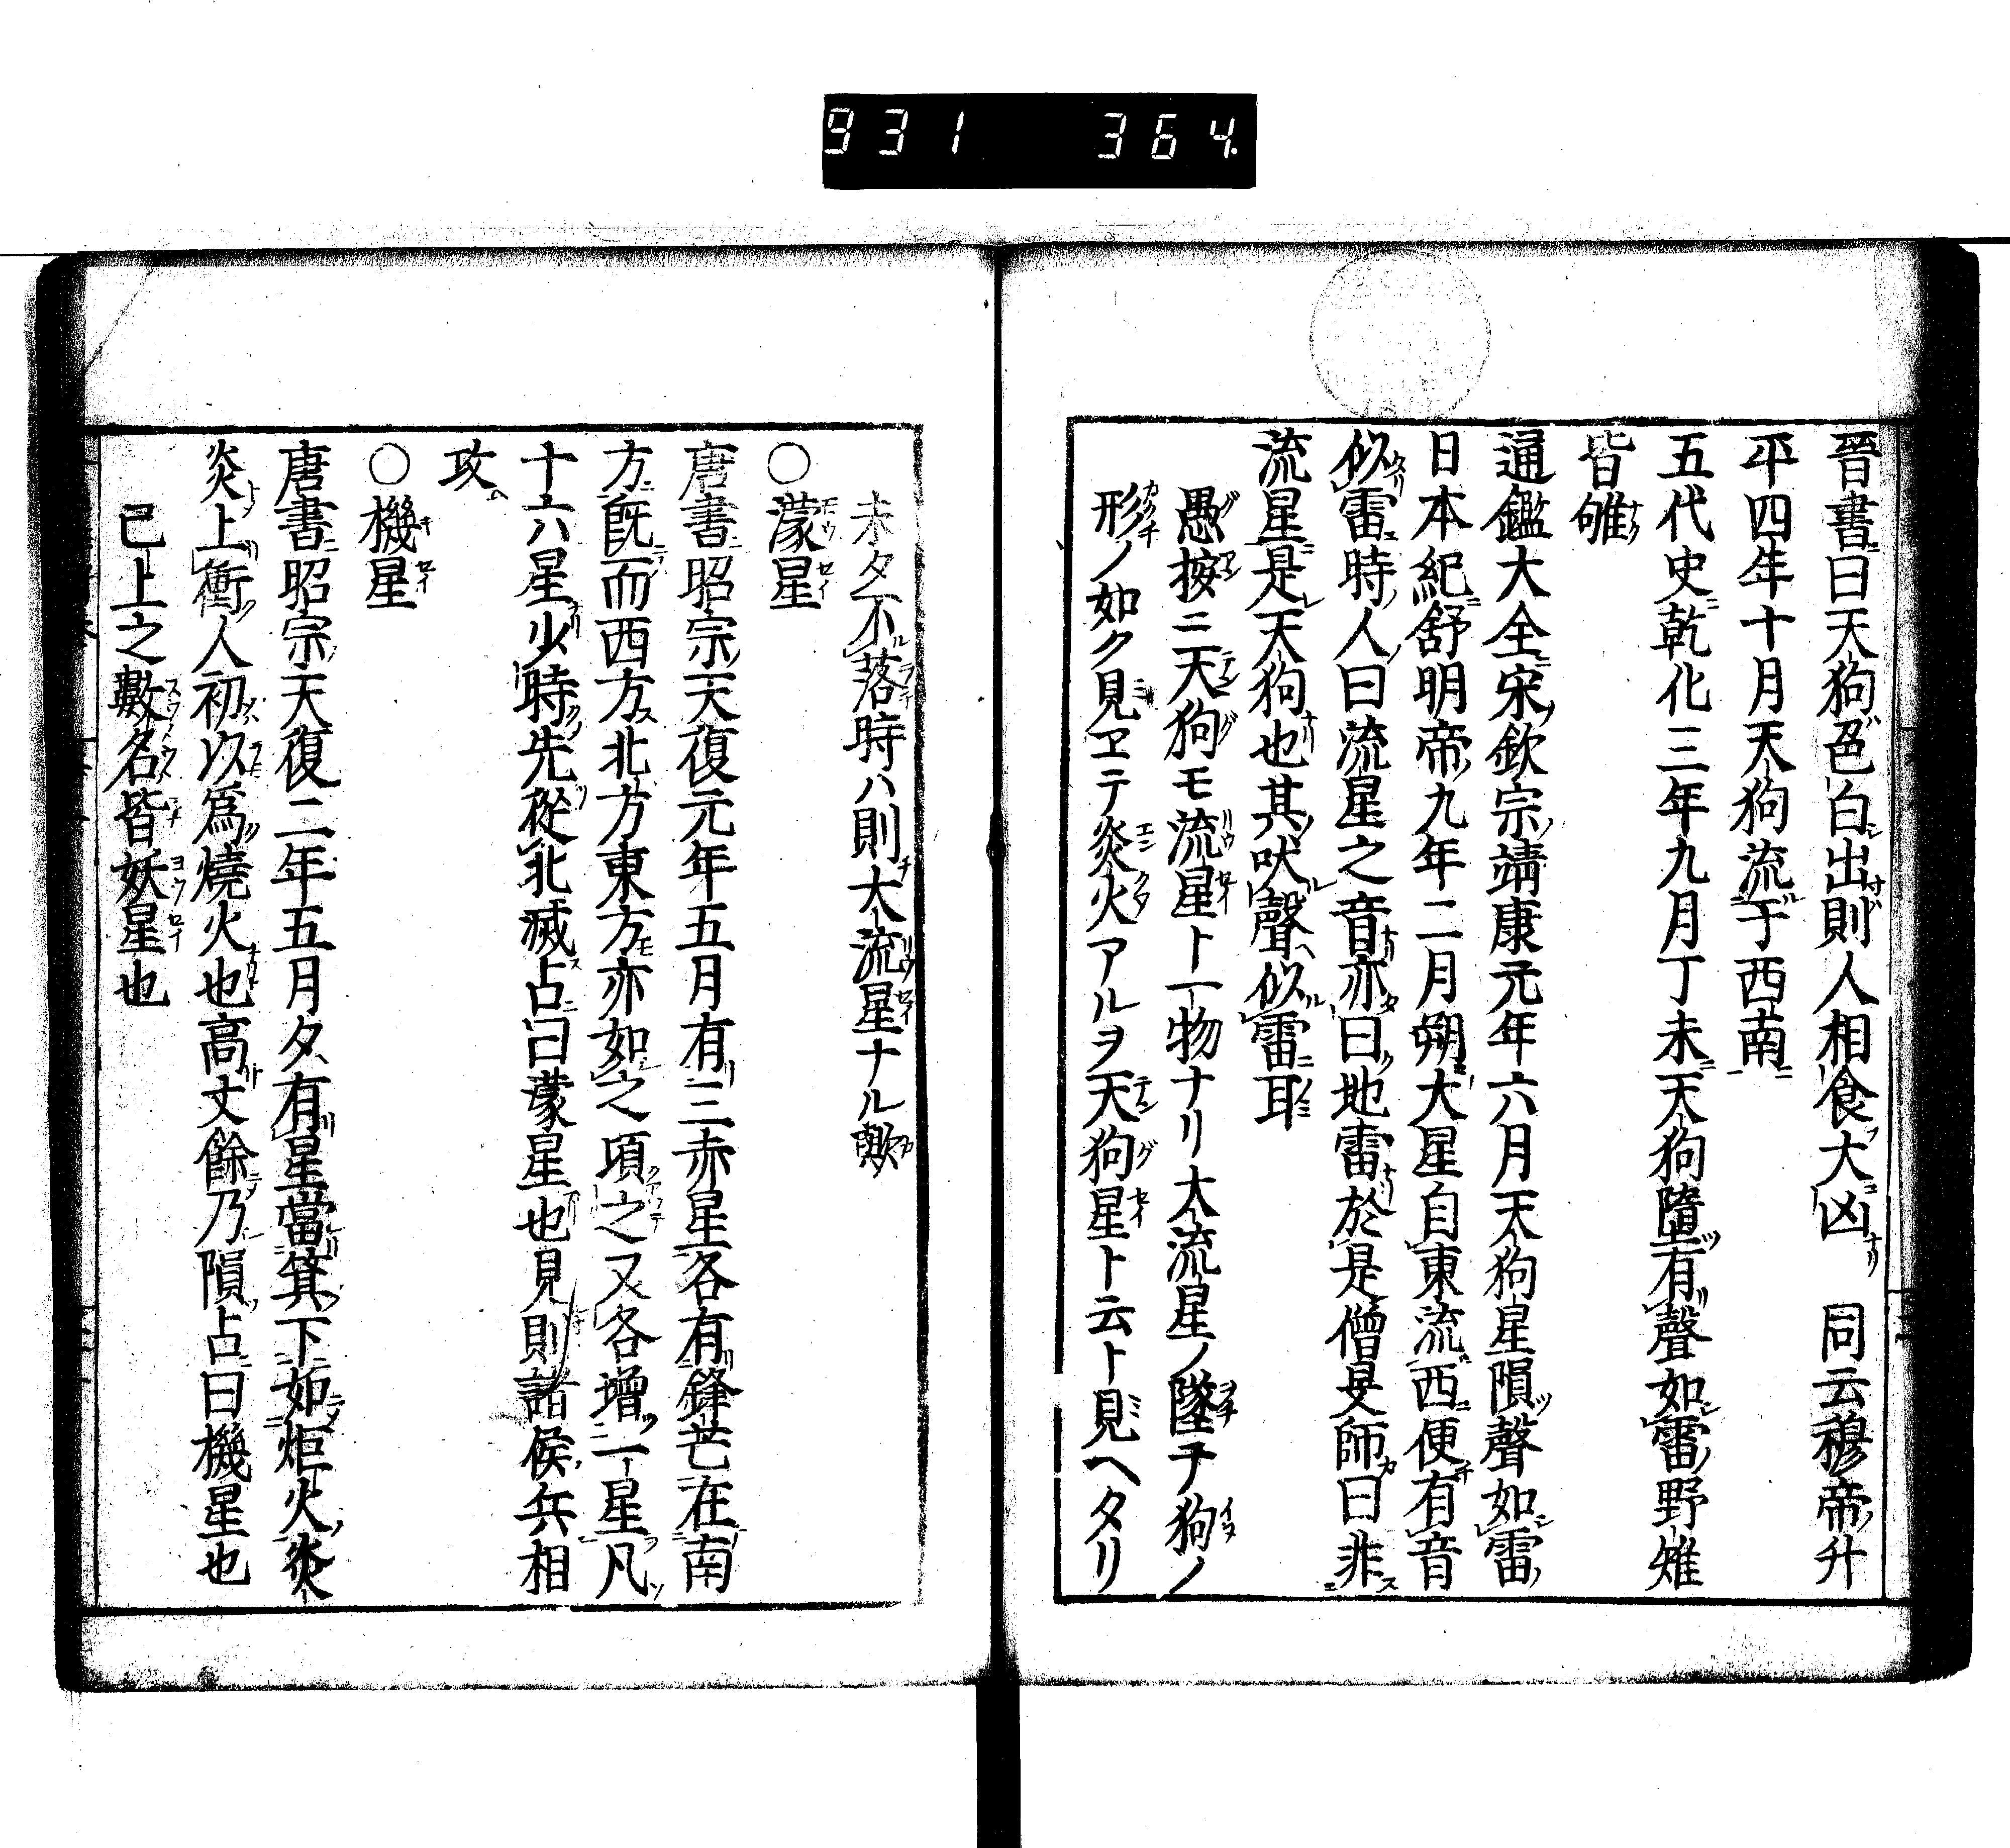 931 364
晉書曰天狗色白出則人相食大凶 同云穆帝升
平四年十月天狗流于西南
五代史乾化三年九月丁未天狗墮有聲如雷野雉
皆雊
通鑑大全宋欽宗靖康元年六月天狗星隕聲如雷
日本紀舒明帝九年二月朔大星自東流西便有音
似雷時人曰流星之音亦曰地雷於是僧旻師曰非
流星是天狗也其吠聲似雷耳
愚按ニ天狗モ流星ト一物ナリ大流星ノ墜チ狗ノ
形ノ如ク見ヱテ炎火アルヲ天狗星ト云ト見ヘタリ
未タ不落時ハ則大流星ナル歟
○濛星
唐書昭宗天復元年五月有三赤星各有鋒芒在南
方既而西方北方東方亦如之項之又各增一星凡
十六星少時先從北滅占曰濛星也見則諸侯兵相
攻
○機星
唐書昭宗天復二年五月夕有星當箕下如炬火炎
炎上衝人初以爲燒火也高丈餘乃隕占曰機星也
已上之數名皆妖星也